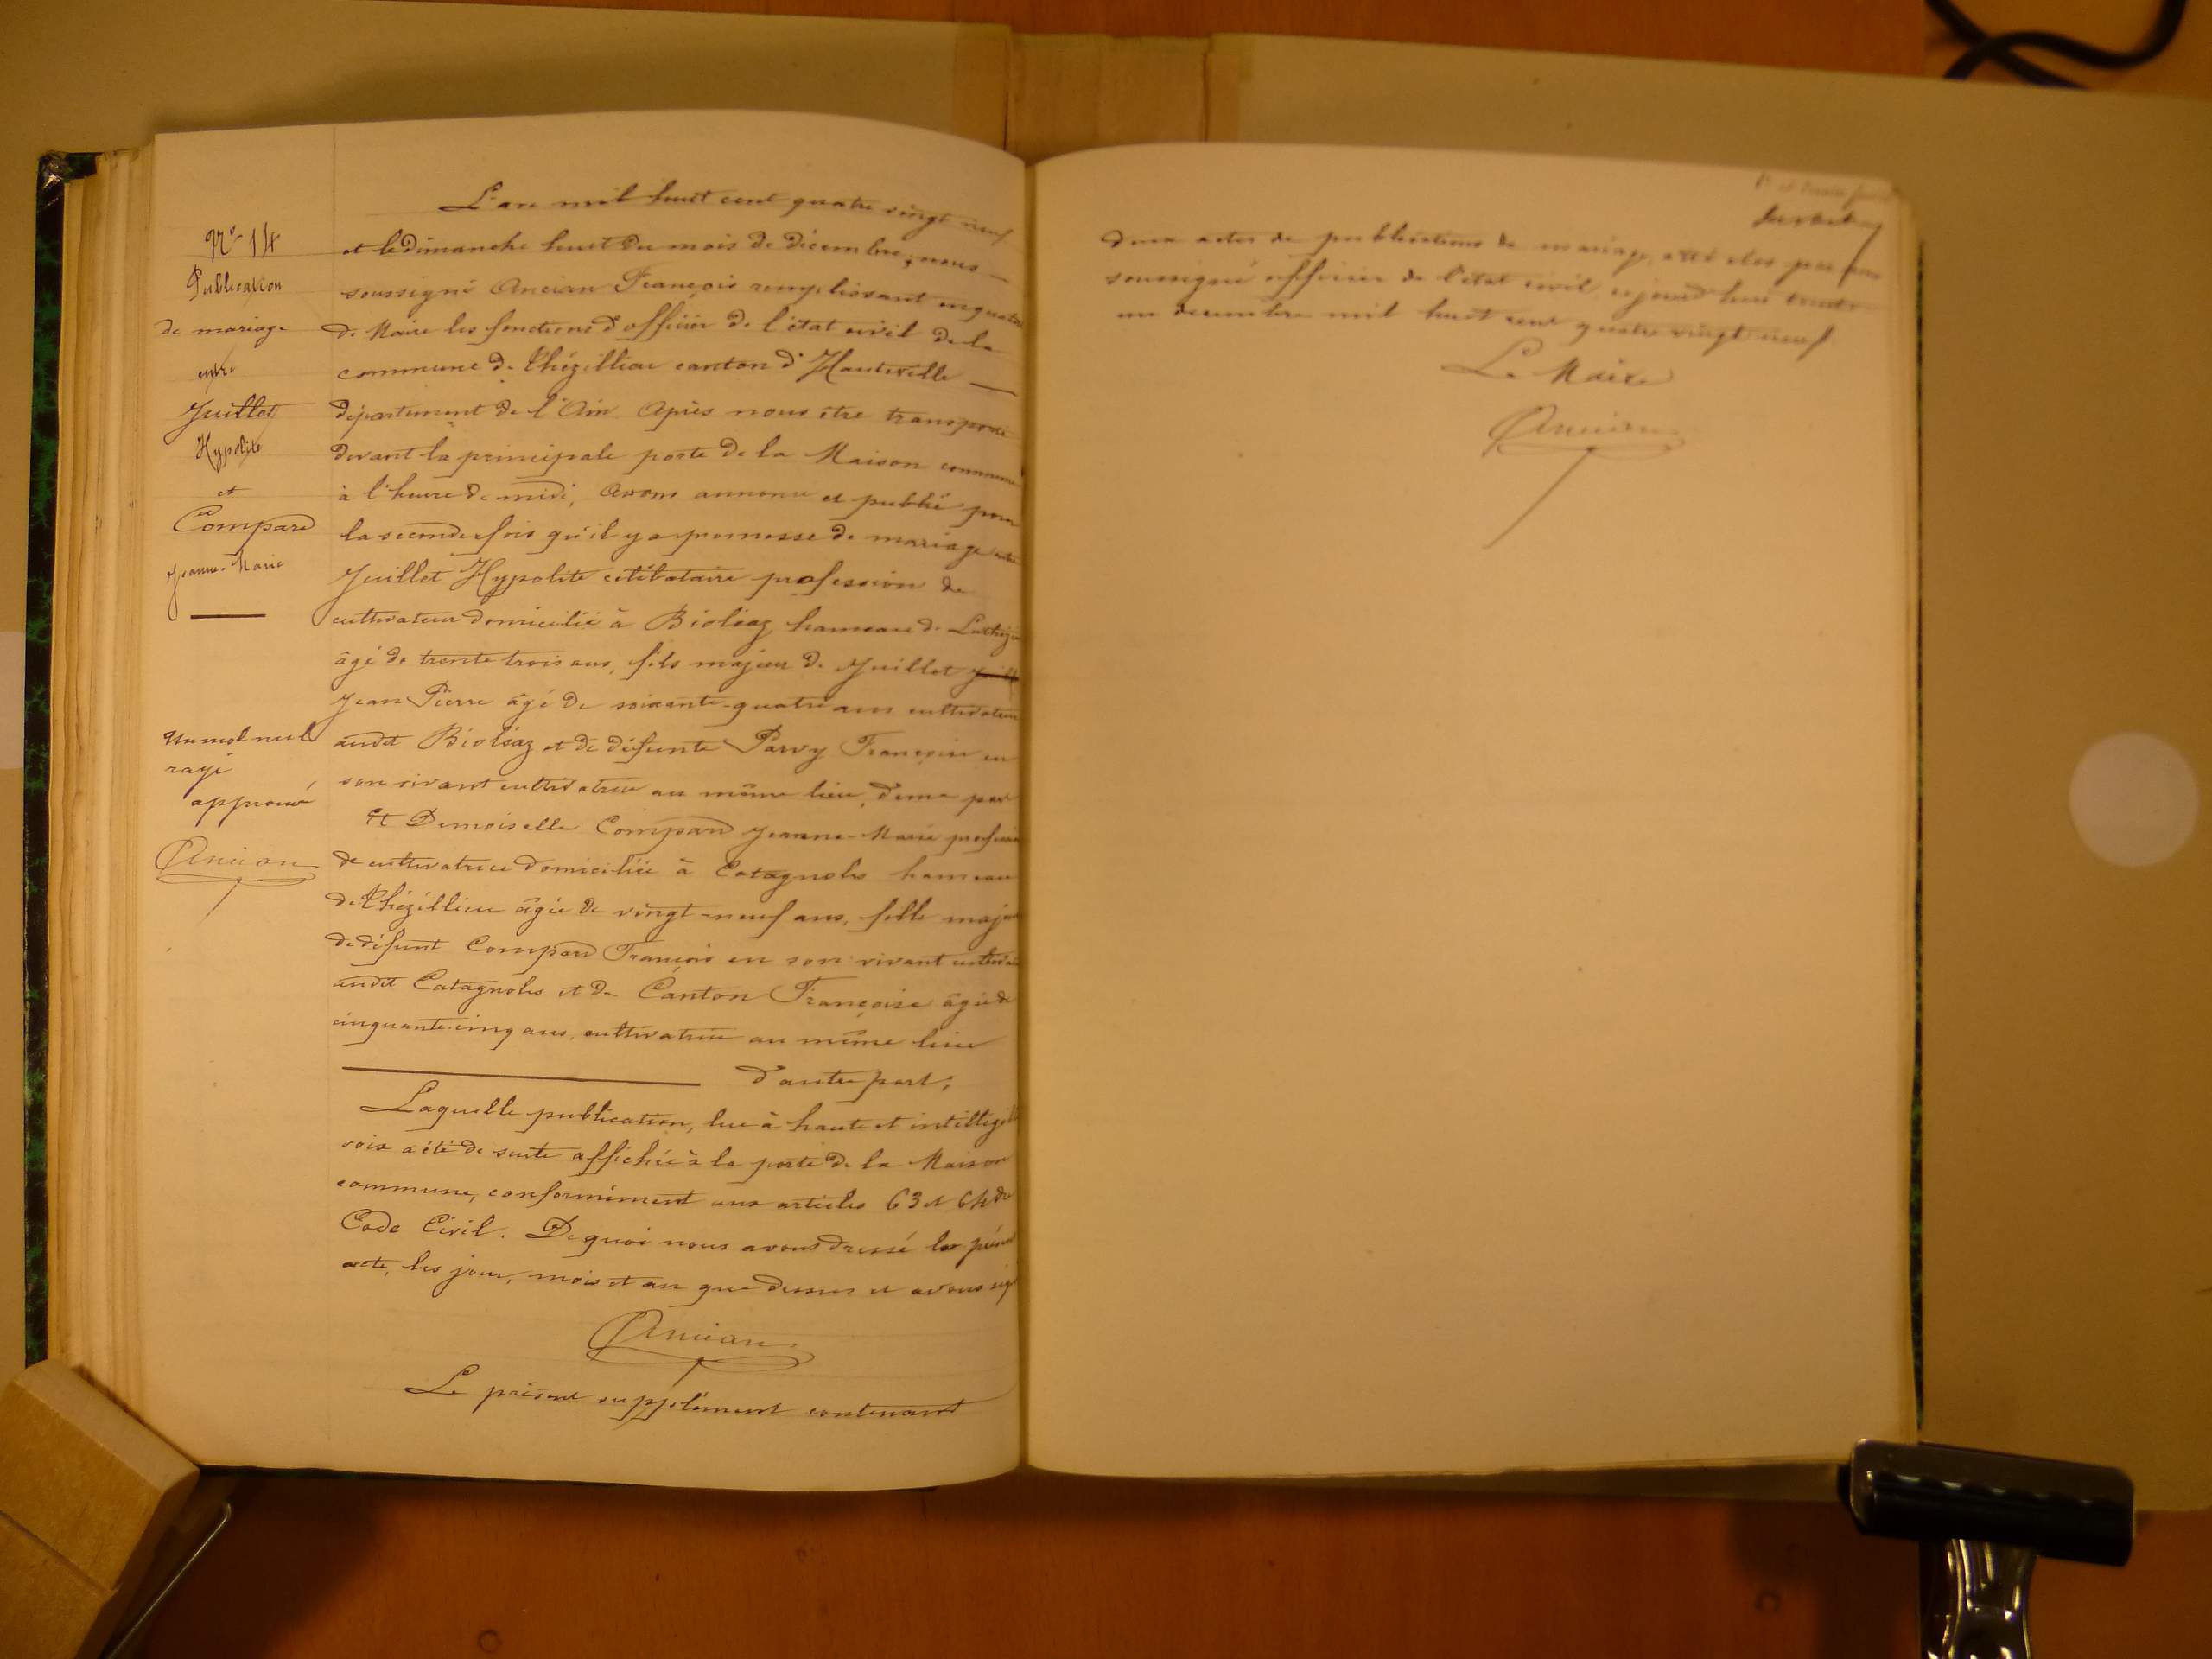 N° 14
Publication
de mariage
entre
Juillet
Hypolite
et
Compard
Jeanne-Marie
L'an mil huit cent quatre vingt neuf
et le dimanche huit du mois de décembre, nous
soussigné Ancian François remplissant en qualité
de Maire les fonctions d'officier de l'état civil de la
commune de Thézillieu canton d'Hauteville
département de l'Ain. Après nous être transporté
devant la principale porte de la Maison commune
à l'heure de midi, Avons annoncé et publié pour
la seconde fois qu'il y a promesse de mariage entre
Juillet Hypolite célibataire profession de
cultivateur domicilié à Bioléaz hameau de
âgé de trente trois ans, fils majeur de Juillet
Jean Pierre âgé de soixante-quatre ans cultivateur
audit Bioléaz et de défunte Parvy Françoise en
son vivant cultivatrice au même lieu, d'une part
Et Demoiselle Compard Jeanne-Marie profession
de cultivatrice domiciliée à Catagnolis hameau
de Thézillieu âgée de vingt-neuf ans, fille majeure
de défunt Compard François en son vivant cultivateur
audit Catagnolis et de Canton Françoise âgée de
cinquante-cinq ans, cultivatrice au même lieu
d'autre part;
Laquelle publication, lue à haute et intelligible
voix a été de suite affichée à la porte de la Maison
commune, conformément aux articles 63 et 64 du
Code Civil. De quoi nous avons dressé le présent
acte, les jour, mois et an que dessus et avons signé
Ancian
Le présent supplément contenant
Un mot nul
rayé
approuvé
Ancian
deux actes de publications de mariage, a été clos par nous
soussigné officier de l'état civil aujourd'hui trente
un décembre mil huit cent quatre vingt neuf
Le Maire
Ancian